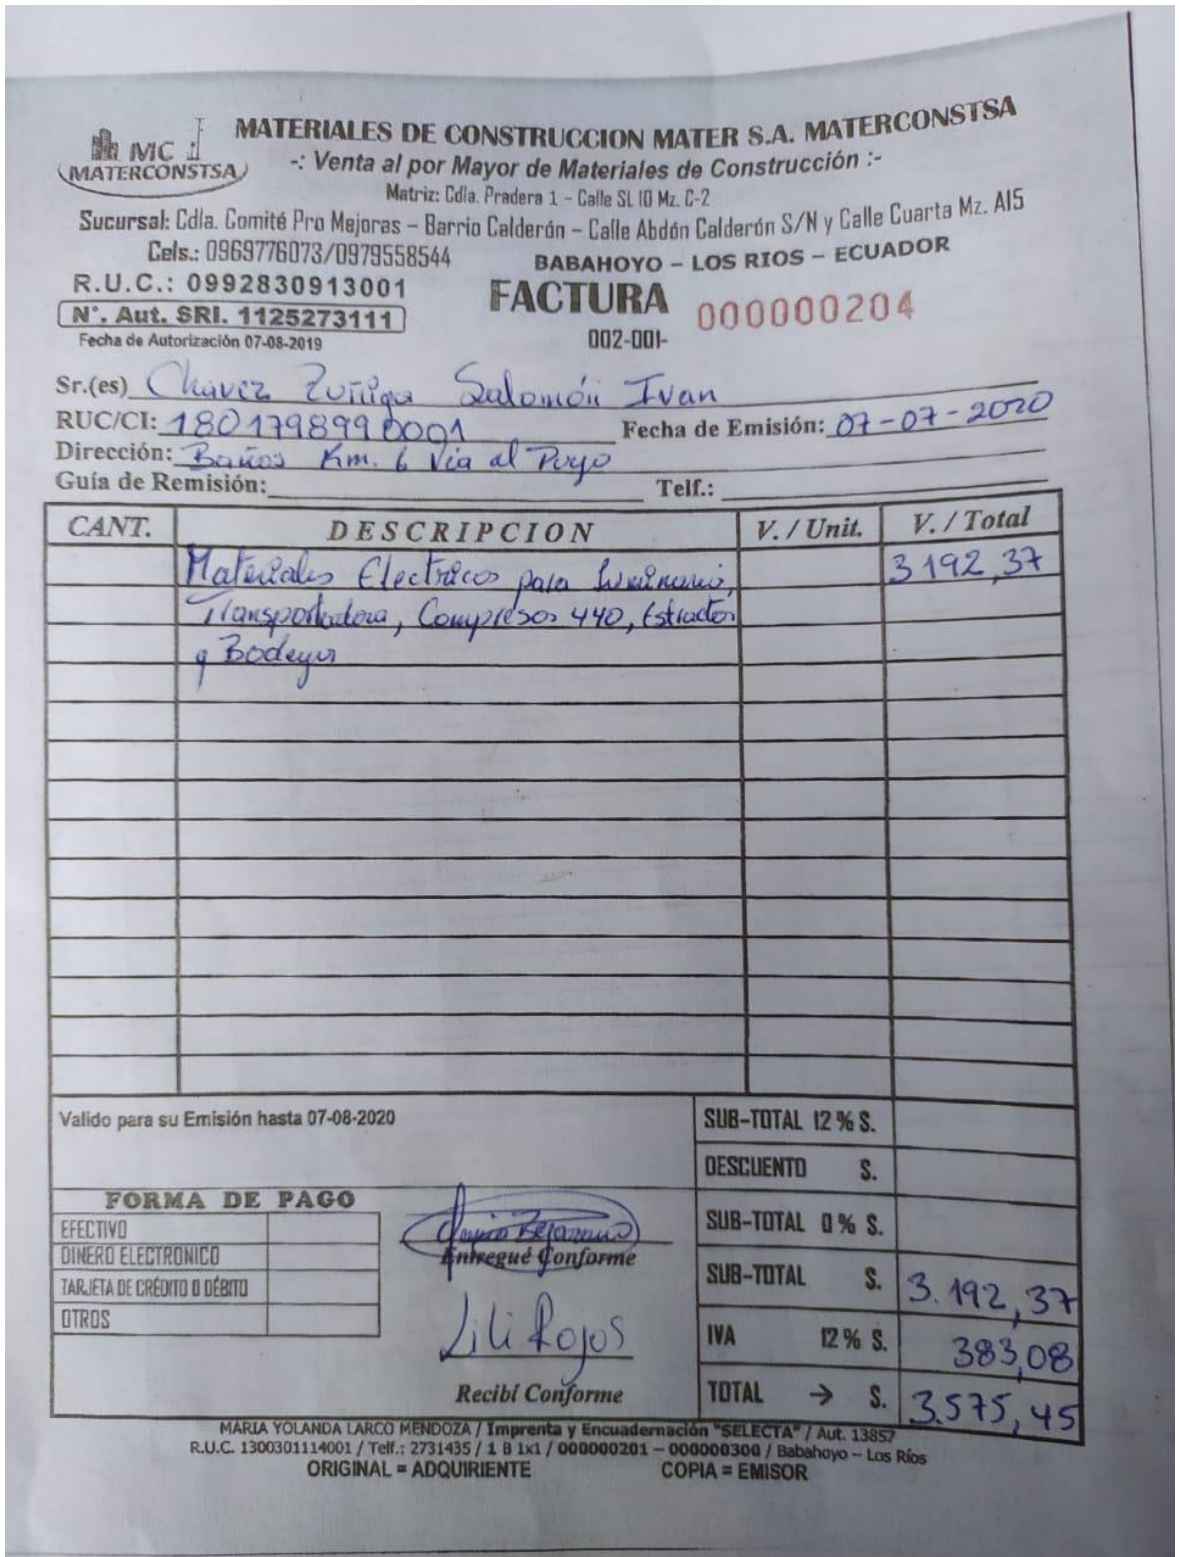 MC
MATERCONSTSA
MATERIALES DE CONSTRUCCION MATER S.A. MATERCONSTSA
-: Venta al por Mayor de Materiales de Construcción :-
Matriz: Cdla. Pradera 1 - Calle SL 10 Mz. C-2
Sucursal: Cdla. Comité Pro Mejoras - Barrio Calderón - Calle Abdón Calderón S/N y Calle Cuarta Mz. A15
Cels.: 0969776073/0979558544
BABAHOYO - LOS RIOS - ECUADOR
R.U.C.: 0992830913001
FACTURA 000000204
N°. Aut. SRI. 1125273111
002-001-
Fecha de Autorización 07-08-2019
Sr.(es) Chavez Zuñiga Salomón Ivan
RUC/CI: 1801798990001 Fecha de Emisión: 07-07-2020
Dirección: Baños Km. 6 Via al Puyo
Guía de Remisión: Telf.:
CANT. DESCRIPCION V. / Unit. V. / Total
Materiales Electricos para 3192,37
Transportadora, Compresor 440, Estractor
y Bodega
Valido para su Emisión hasta 07-08-2020
SUB-TOTAL 12 % S.
DESCUENTO S.
FORMA DE PAGO
EFECTIVO
DINERO ELECTRONICO
TARJETA DE CRÉDITO O DÉBITO
OTROS
Bejarano
Entregué Conforme
Lili Rojas
Recibí Conforme
SUB-TOTAL 0 % S.
SUB-TOTAL S. 3.192,37
IVA 12 % S. 383,08
TOTAL → S. 3.575,45
MARIA YOLANDA LARCO MENDOZA / Imprenta y Encuadernación "SELECTA" / Aut. 13857
R.U.C. 1300301114001 / Telf.: 2731435 / 1 B 1x1 / 000000201 - 000000300 / Babahoyo - Los Ríos
ORIGINAL = ADQUIRIENTE COPIA = EMISOR